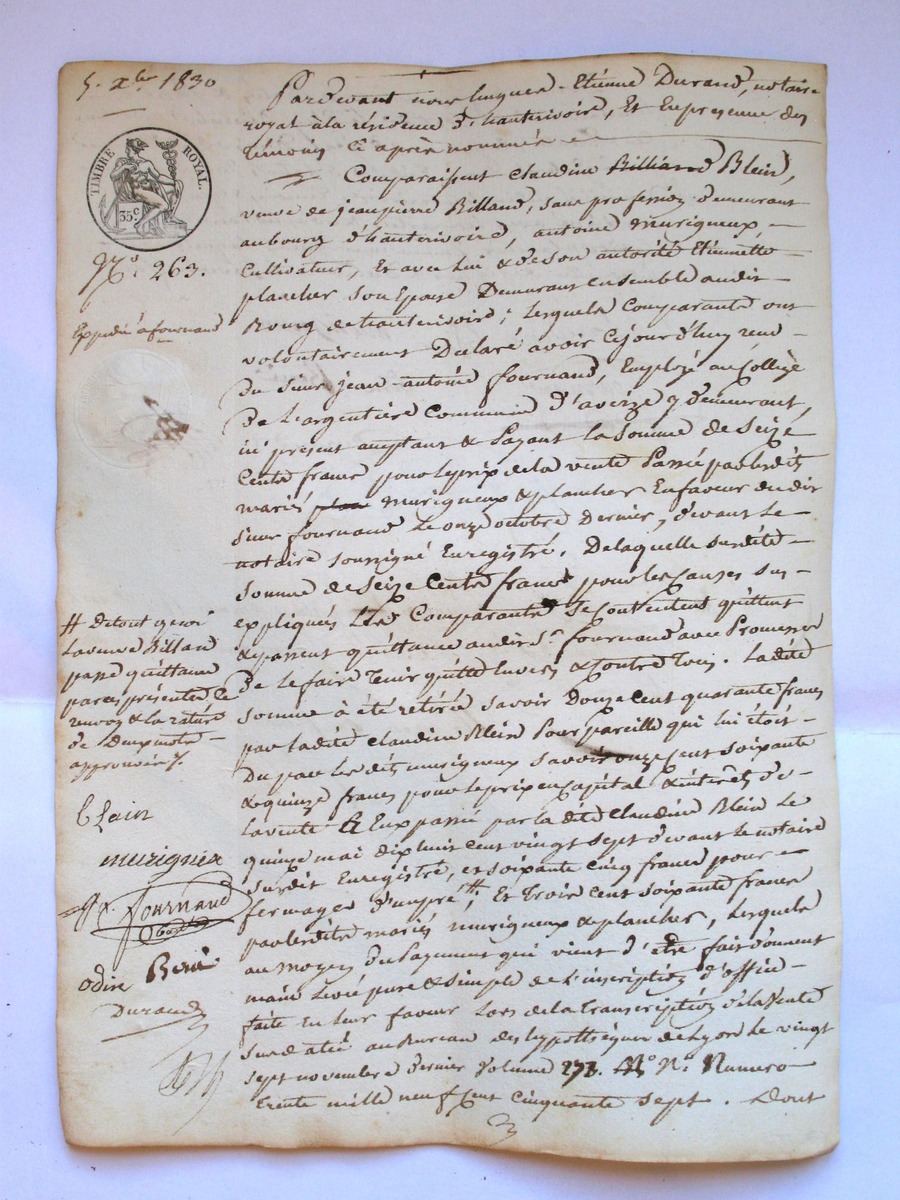 5. Xbre 1830
TIMBRE ROYAL.
35 c
No. 263.
Expédié à fournand
Pardevant nous Etienne Durand, notaire
royal à la résidence d'hauterivoire, Et En presence des
témoins Ci après nommés
Comparaissent claudine Billiard Blein,
veuve de jeanpierre Billand, sans profession demeurant
aubourg d'hauterivoire, antoine murigneux,
Cultivateur, Et avec Lui & de Son autorité Etiennette
plancher Son Epouse Demeurant ensemble audit
Bourg de hauterivoire; Lesquels Comparants ont
volontairement Declaré avoir Cejourd'huy reçu
Du Sieur jean-antoine fournand, Employé au Collège
De Largentière Commune D'aveize y demeurant,
ici présent acceptant & Payant La Somme de Seize
Cents francs pour le prix de la vente Passée par Lesdits
mariés plan murigneux & plancher En faveur dudit
Sieur fournand Le onze octobre Dernier, devant Le
notaire soussigné Enregistré. De laquelle Susdite
Somme de Seize Cents francs pour les Causes sus
expliqués Les Comparants Se Contentent quittent
& passent quittance audit Sr. fournand avec Promesse
De le faire Tenir quitte Envers & Contre Tous. Ladite
Somme à été retirée Savoir Douze Cent quarante francs
par Ladite Claudine Blein Pour pareille qui lui étoit
Du par Les dits murigneux Savoir onze Cent Soixante
& quinze francs pour le prix en Capital & intérêts de
La vente à Eux passée par la dite Claudine Blein Le
quinze mai dix huit cent vingt Sept devant Le notaire
Susdit Enregistré, et Soixante Cinq francs pour
fermages #; Et Trois Cent Soixante francs
par Lesdits mariés murigneux & plancher, Lesquels
au moyen du Payement qui vient d'être fait donnent
main Levée pure & Simple de L'inscription d'office
faite En Leur faveur Lors de la transcription de La vente
Susdatée au Bureau des hypothèques de Lyon Le vingt
Sept novembre dernier Volume 273. No Numero
trente mille neuf Cent Cinquante Sept. Dont
# De tout quoi
La veuve Billand
passe quittance
par ces présentes Ce
renvoi & la rature
de Deux mots
approuvés
blain
murigneux
fournand
odin
Durand